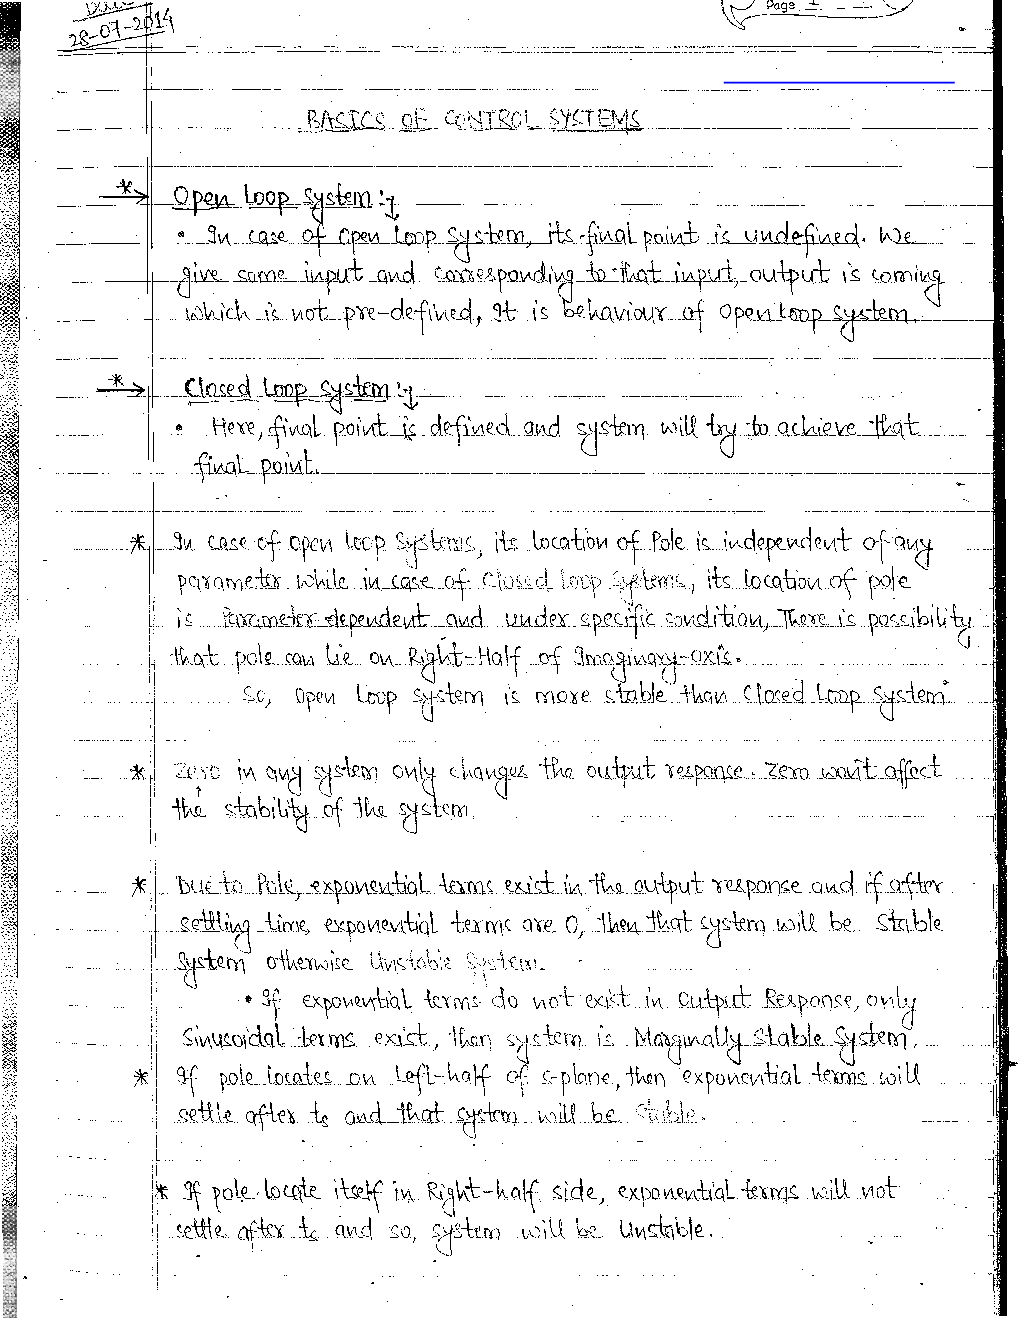 Date
28-07-2014
Page 1
BASICS OF CONTROL SYSTEMS
* Open Loop System :
• In case of Open Loop System, its final point is undefined. We
give some input and corresponding to that input, output is coming
which is not pre-defined, It is behaviour of Open Loop system.
* Closed Loop System :
• Here, final point is defined and system will try to achieve that
final point.
* In case of Open Loop Systems, its location of Pole is independent of any
parameter while in case of Closed loop Systems, its location of pole
is Parameter dependent and under specific condition, There is possibility
that pole can lie on Right-Half of Imaginary-axis.
So, Open Loop System is more stable than Closed Loop System.
* Zero in any system only changes the output response. Zero won't affect
the stability of the system.
* Due to Pole, exponential terms exist in the output response and if after
settling time, exponential terms are 0, then that system will be Stable
System otherwise Unstable System.
• If exponential terms do not exist in Output Response, only
Sinusoidal terms exist, then system is Marginally Stable System.
* If pole locates on Left-half of s-plane, then exponential terms will
settle after ts and that system will be Stable.
* If pole locate itself in Right-half side, exponential terms will not
settle after ts and so, system will be Unstable.